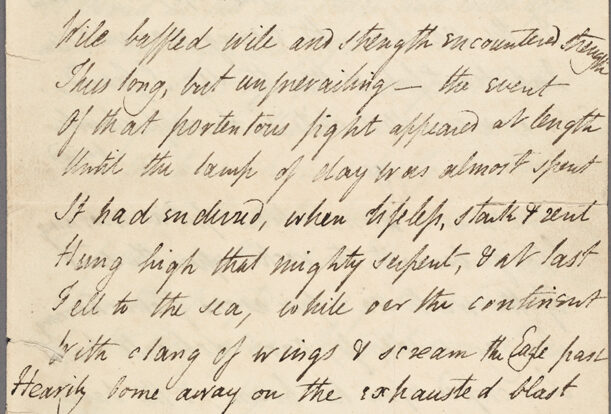 Wile baffled wile and strength encountered strength
Thus long, but unprevailing — the event
Of that portentous fight appeared at length
Until the lamp of day was almost spent
It had endured, when lifeless, stark & rent
Hung high that mighty serpent, & at last
Fell to the sea, while oer the continent
With clang of wings & scream the Eagle past
Heavily borne away on the exhausted blast